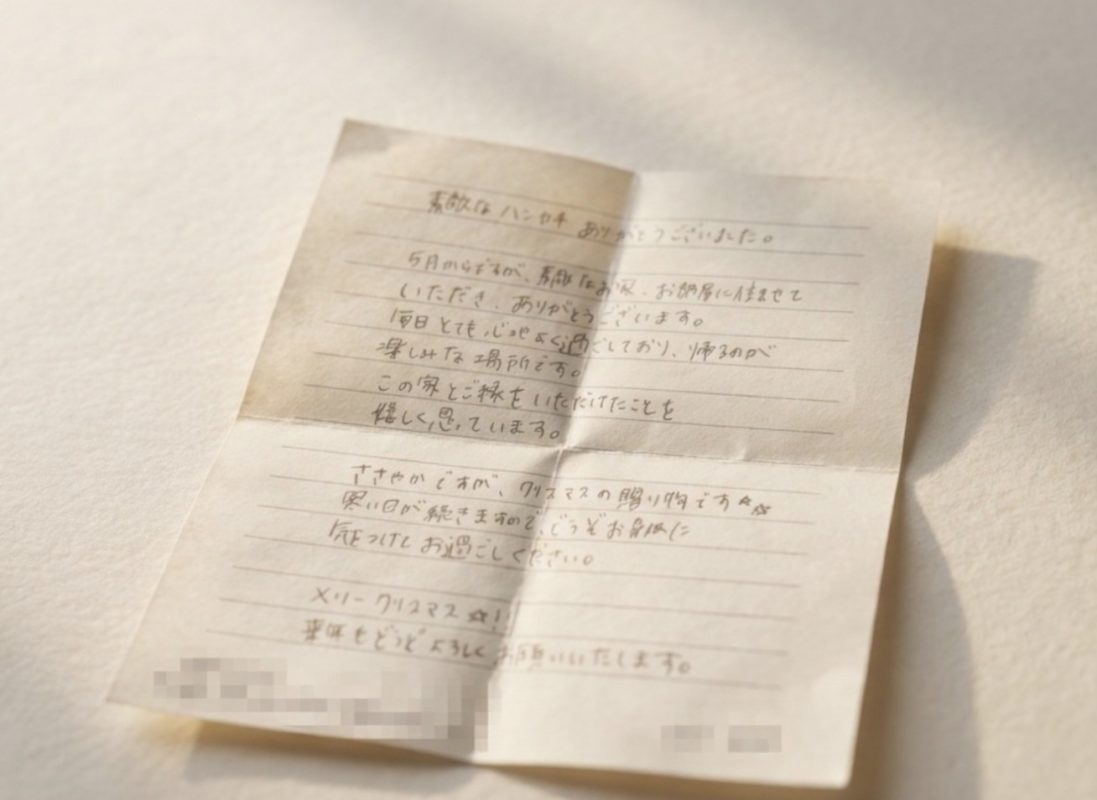 素敵なハンカチ ありがとうございました。
5月からですが、素敵なお家、お部屋に住ませて
いただき、ありがとうございます。
毎日とても心地よく過ごしており、帰るのが
楽しみな場所です。
この家とご縁をいただけたことを
嬉しく思っています。
ささやかですが、クリスマスの贈り物です☆☆
寒い日が続きますので、どうぞお身体に
気をつけてお過ごしください。
メリークリスマス☆!!
来年もどうぞよろしくお願いいたします。